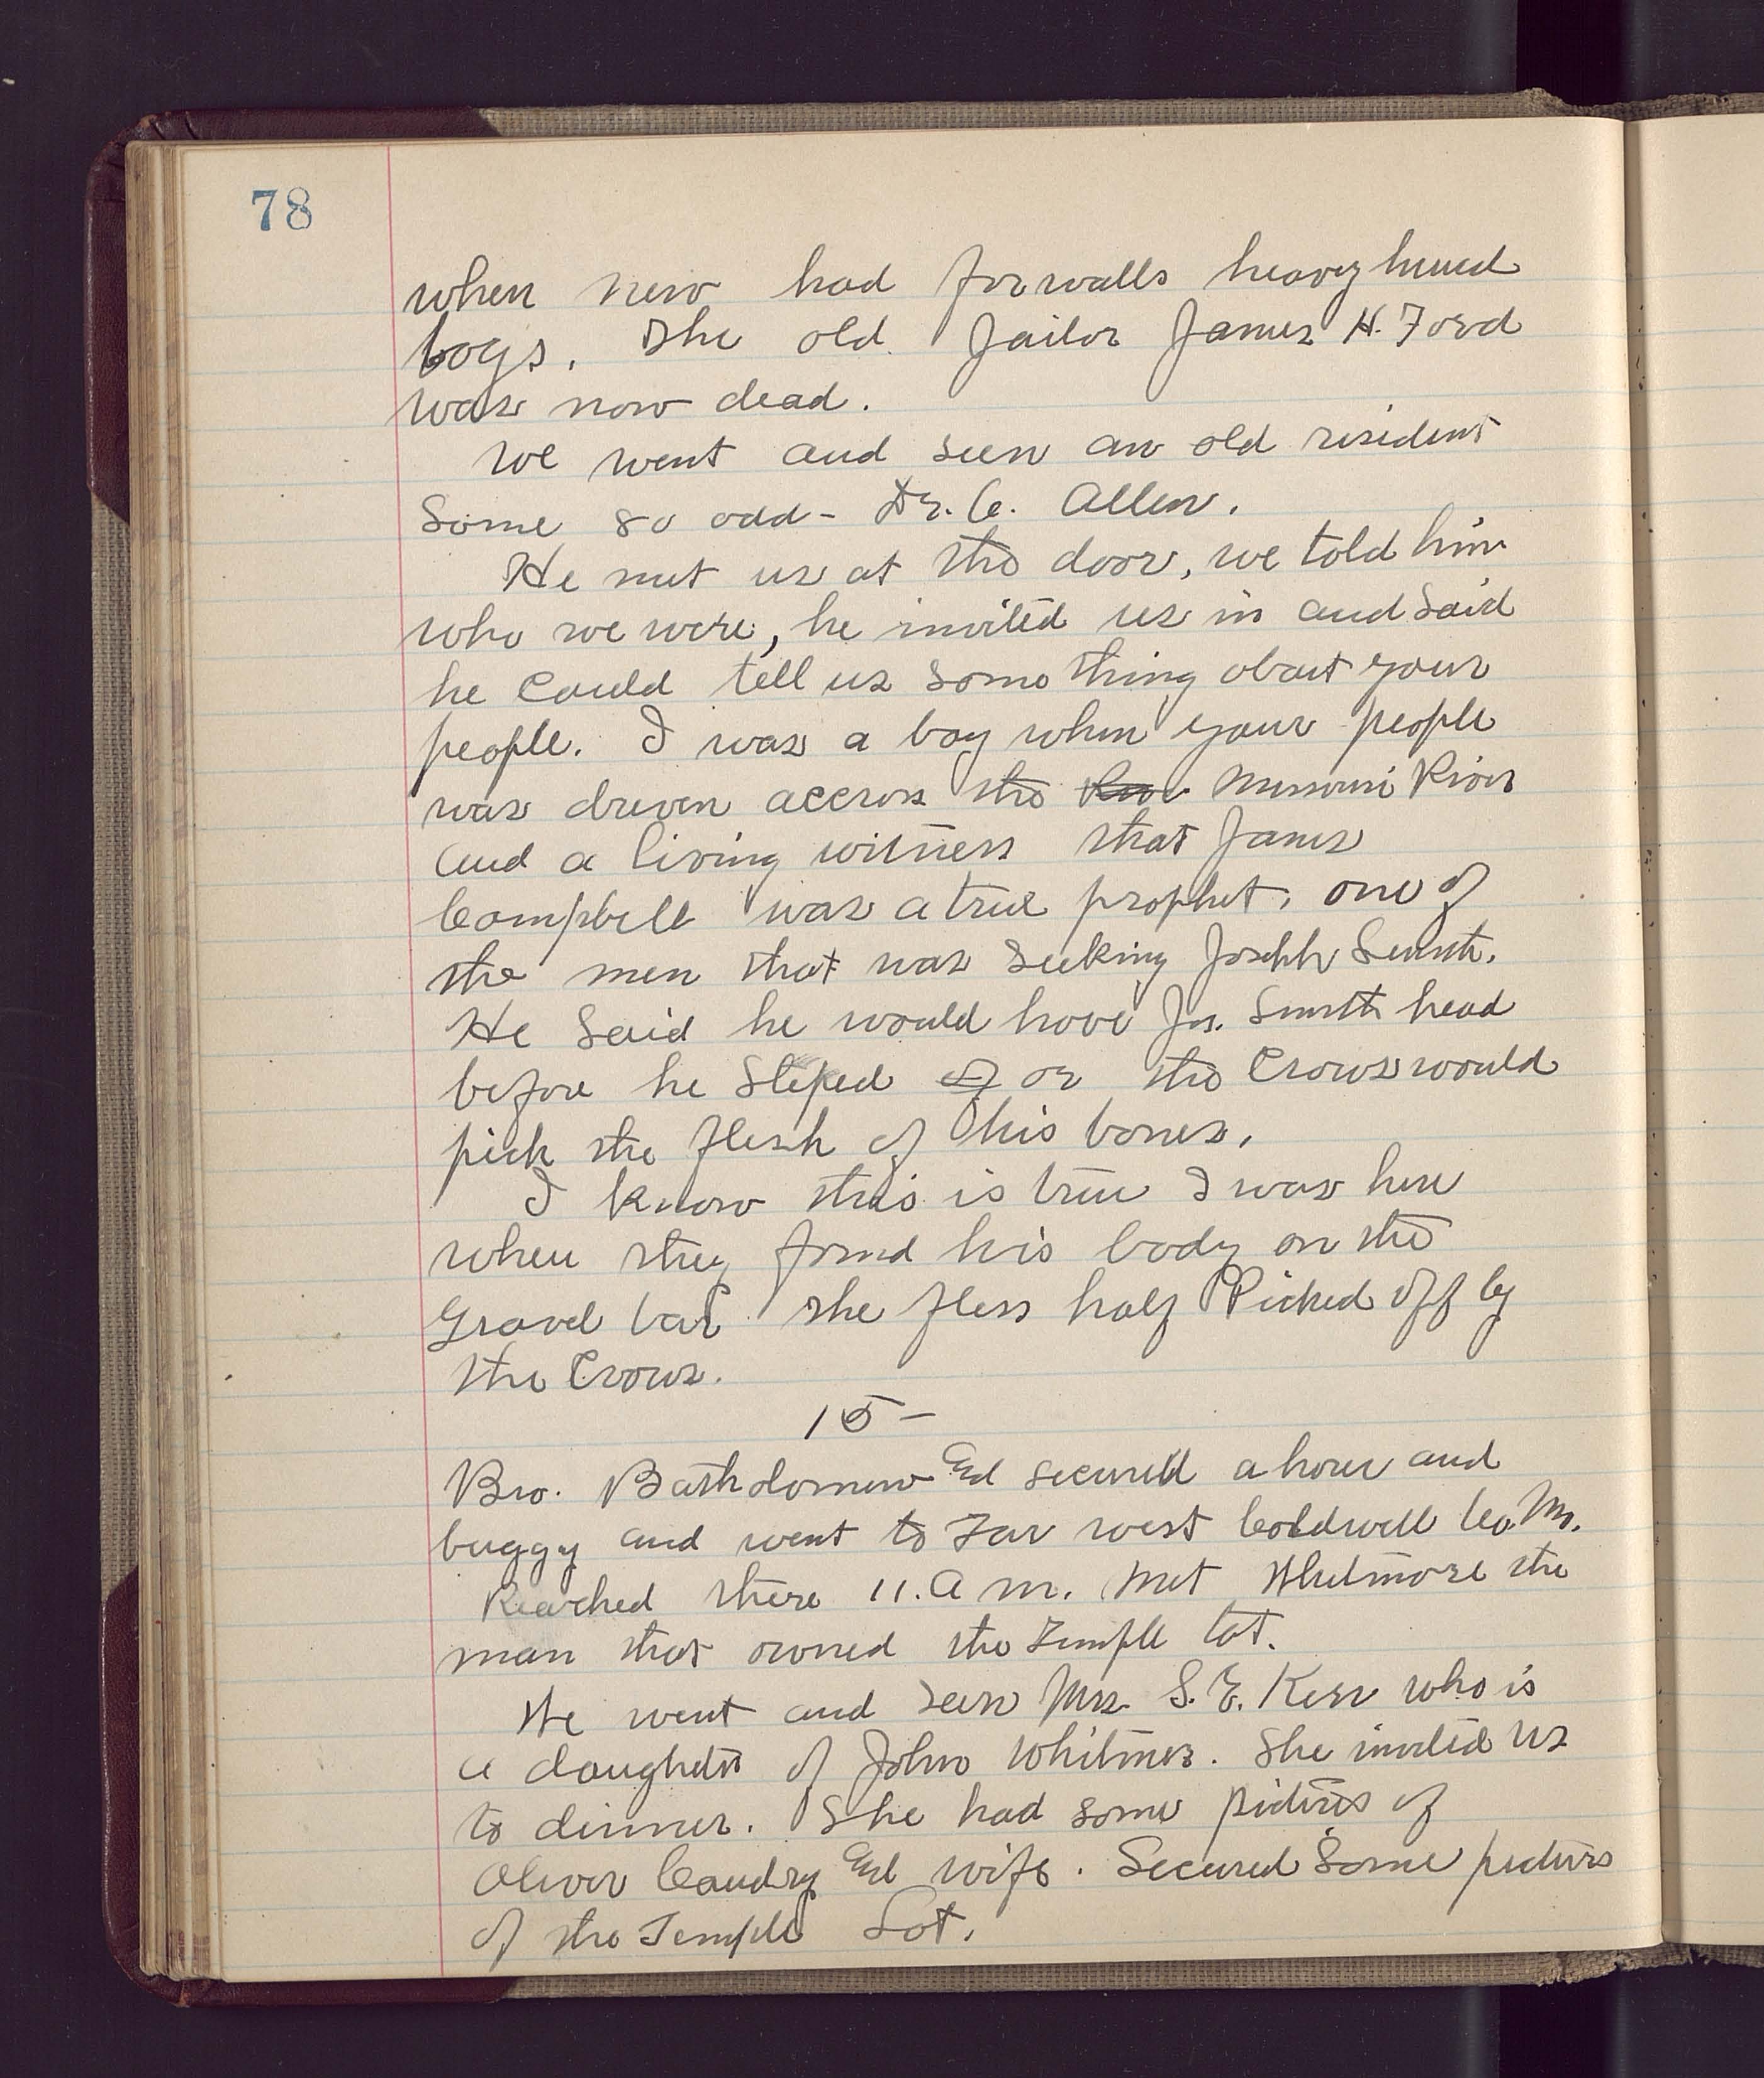 78
when new had for walls heavy hued
logs. The old Jailor James H. Ford
was now dead.
We went and seen an old resident
Some 80 odd - Dr. C. Allen.
He met us at the door, we told him
who we were, he invited us in and said
he could tell us some thing about your
people. I was a boy when your people
was dreven accross the Missouri River
and a living witness that James
Campbell was a true prophet, one of
the men that was seeking Joseph Smith.
He said he would have Jos. Smith head
before he Steped of or the Crows would
pick the flesh of his bones.
I know this is true I was here
when they found his body on the
Gravel bar the fless half Picked off by
the Crows.
15 -
Bro. Bartholomew and secured a horse and
buggy and went to Far west Coldwell Co. Mo.
Reached there 11. A m. Met Whitmore the
man that owned the Temple lot.
We went and seen Mrs. S. E. Kerr who is
a daughter of John Whitmer. She invited us
to dinner. She had some pictures of
Oliver Coudry and wife. Secured some pictures
of the Temple Lot.